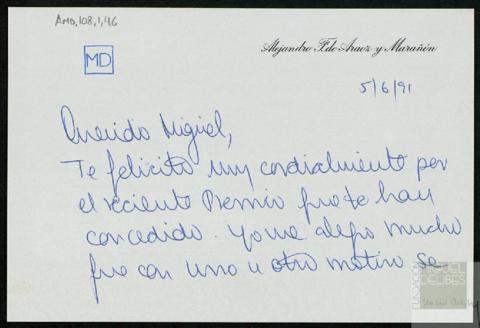 AMD,108,1,46
MD
Alejandro F. de Araoz y Marañón
5/6/91
Querido Miguel,
Te felicito muy cordialmente por
el reciente Premio que te han
concedido. Yo me alegro mucho
que con uno u otro motivo se
FUNDACIÓN
MIGUEL
DELIBES